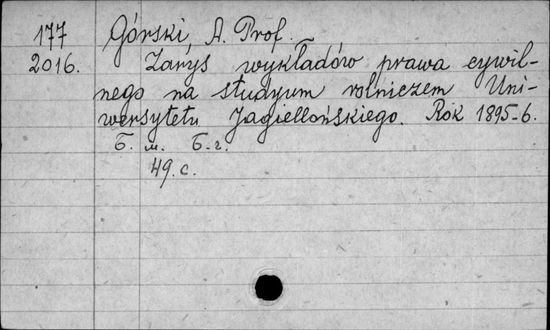 177 Górski, A. Prof.
2016. Zarys wykładów prawa cywil-
nego na studyum rolniczem Uni-
wersytetu Jagiellońskiego. Rok 1895-6.
Б. м. Б. г.
49. с.